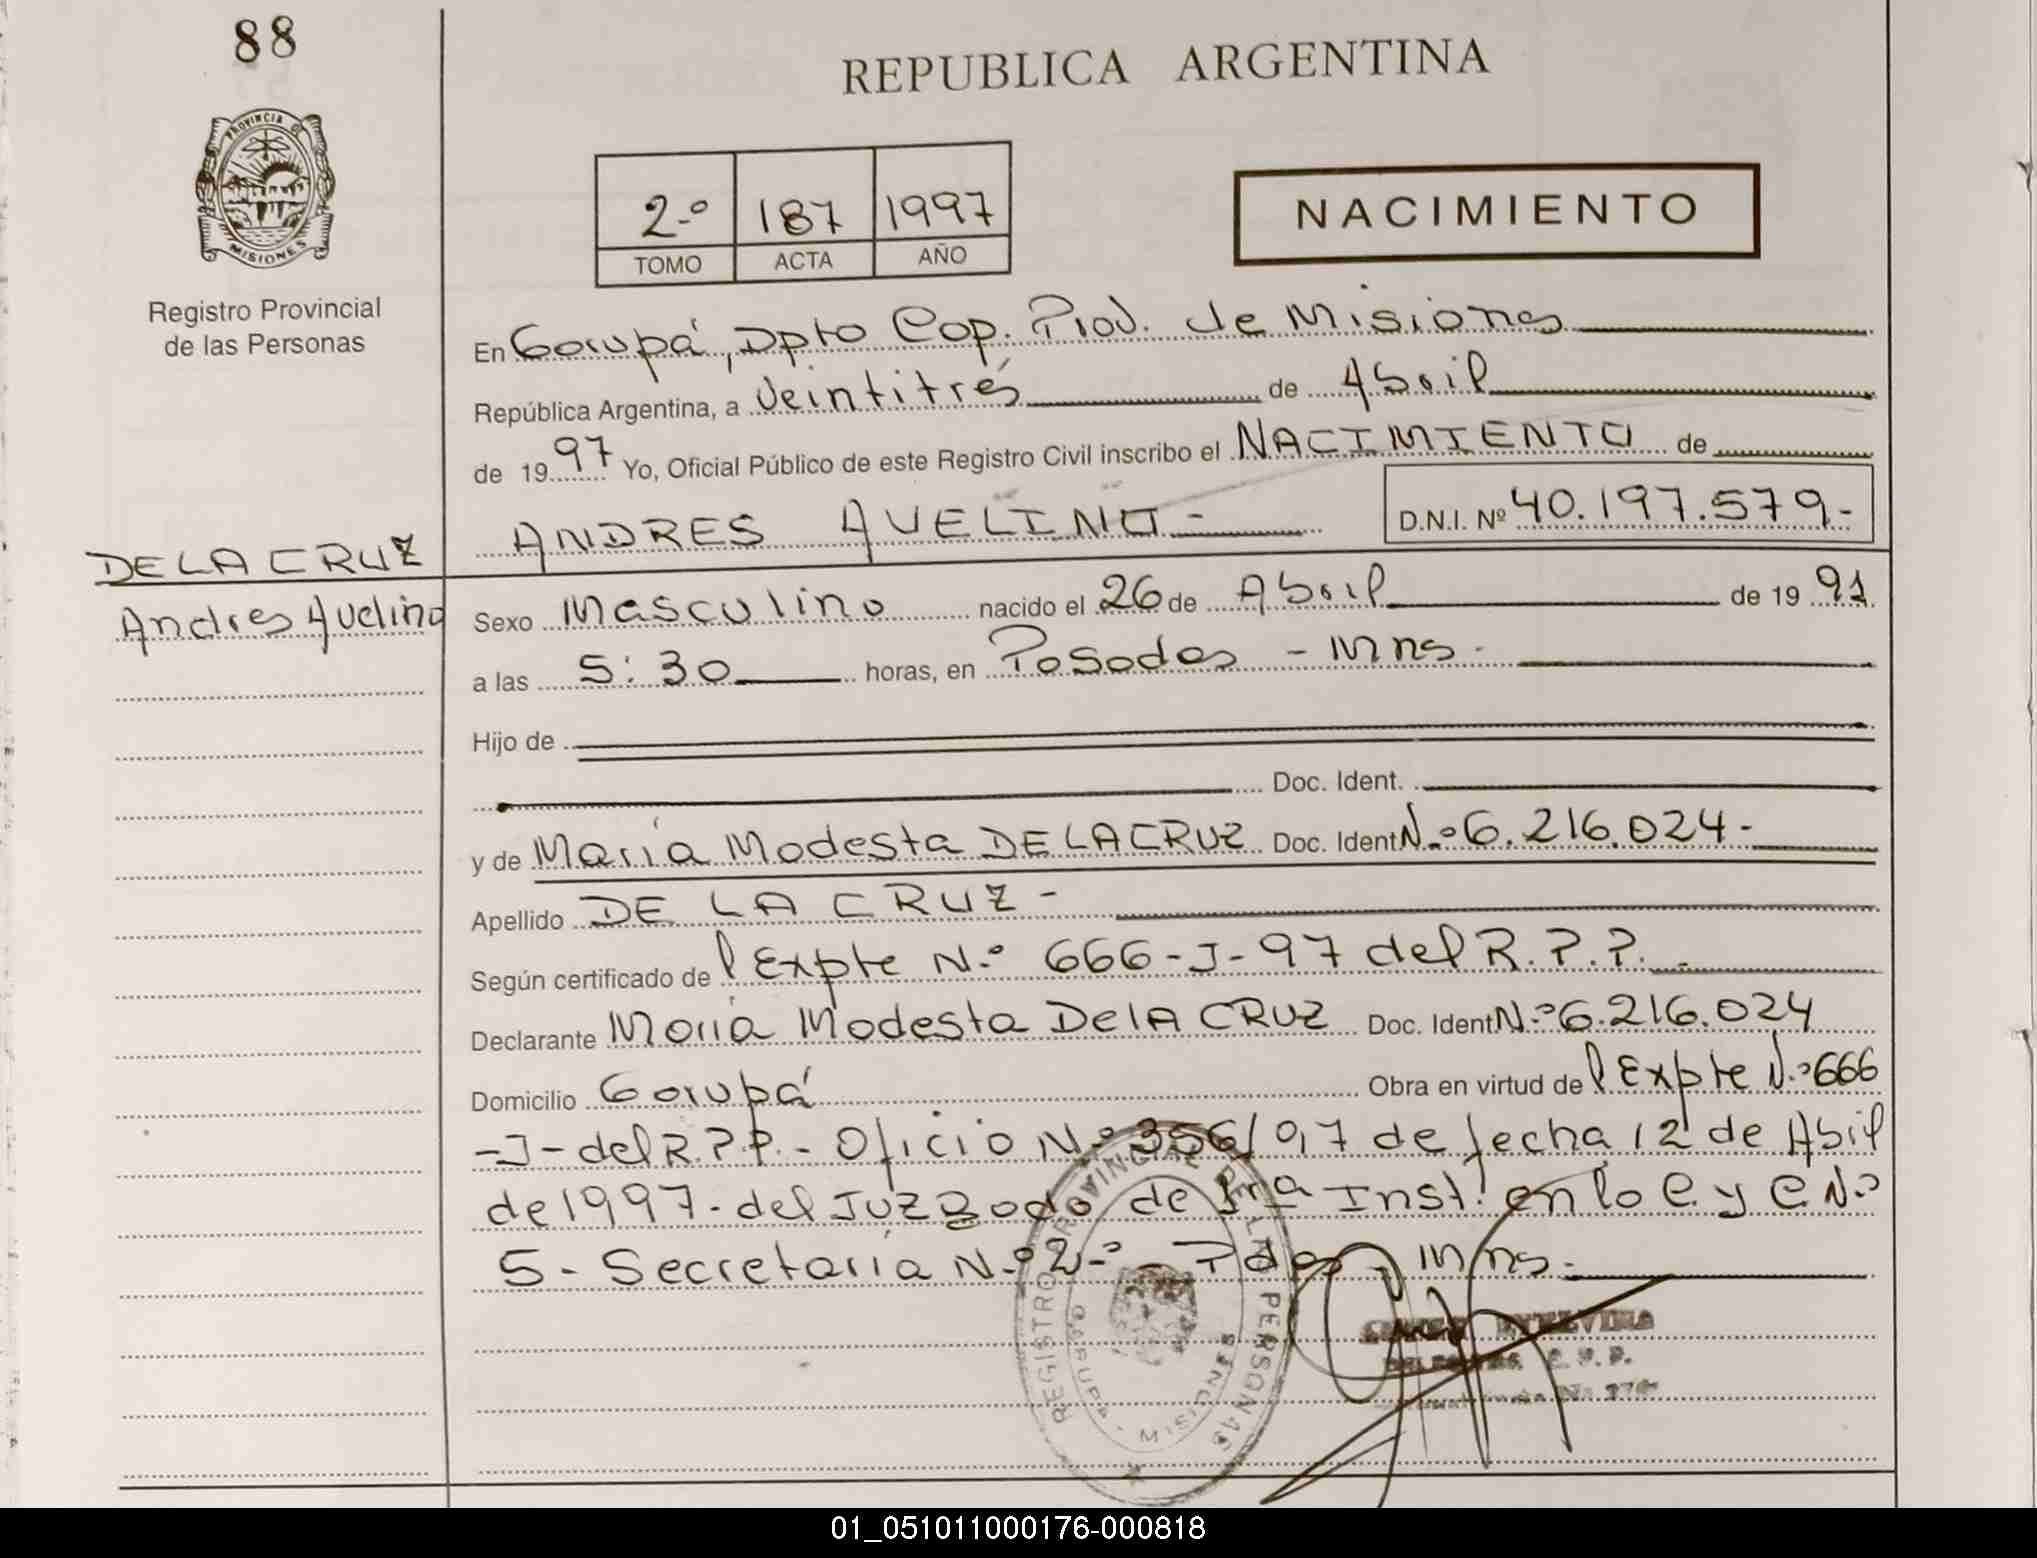 88
REPUBLICA ARGENTINA
PROVINCIA DE
MISIONES
Registro Provincial
de las Personas
2-º 187 1997
TOMO ACTA AÑO
NACIMIENTO
En Garupá, Dpto Cap. Prov. de Misiones
República Argentina, a Veintitrés de Abril
de 1997 Yo, Oficial Público de este Registro Civil inscribo el NACIMIENTO de
ANDRES AVELINO - D.N.I. Nº 40.197.579-
DE LA CRUZ
Andres Avelino
Sexo Masculino nacido el 26 de Abril de 1991
a las 5:30 horas, en Posadas - Mnes.
Hijo de
Doc. Ident.
y de María Modesta DE LA CRUZ Doc. Ident Nº 6.216.024-
Apellido DE LA CRUZ -
Según certificado del Expte Nº 666-J-97 del R.P.P.
Declarante María Modesta De lA CRUZ Doc. Ident Nº 6.216.024
Domicilio Garupá Obra en virtud del Expte Nº 666
-J- del R.P.P. - Oficio Nº 356/97 de fecha 12 de Abril
de 1997 - del Juzgado de 1ra Inst. en lo C. y C Nº
5 - Secretaría Nº 2-º - Pdas - Mnes.
REGISTRO PROVINCIAL DE LAS PERSONAS
GARUPA - MISIONES
01_051011000176-000818